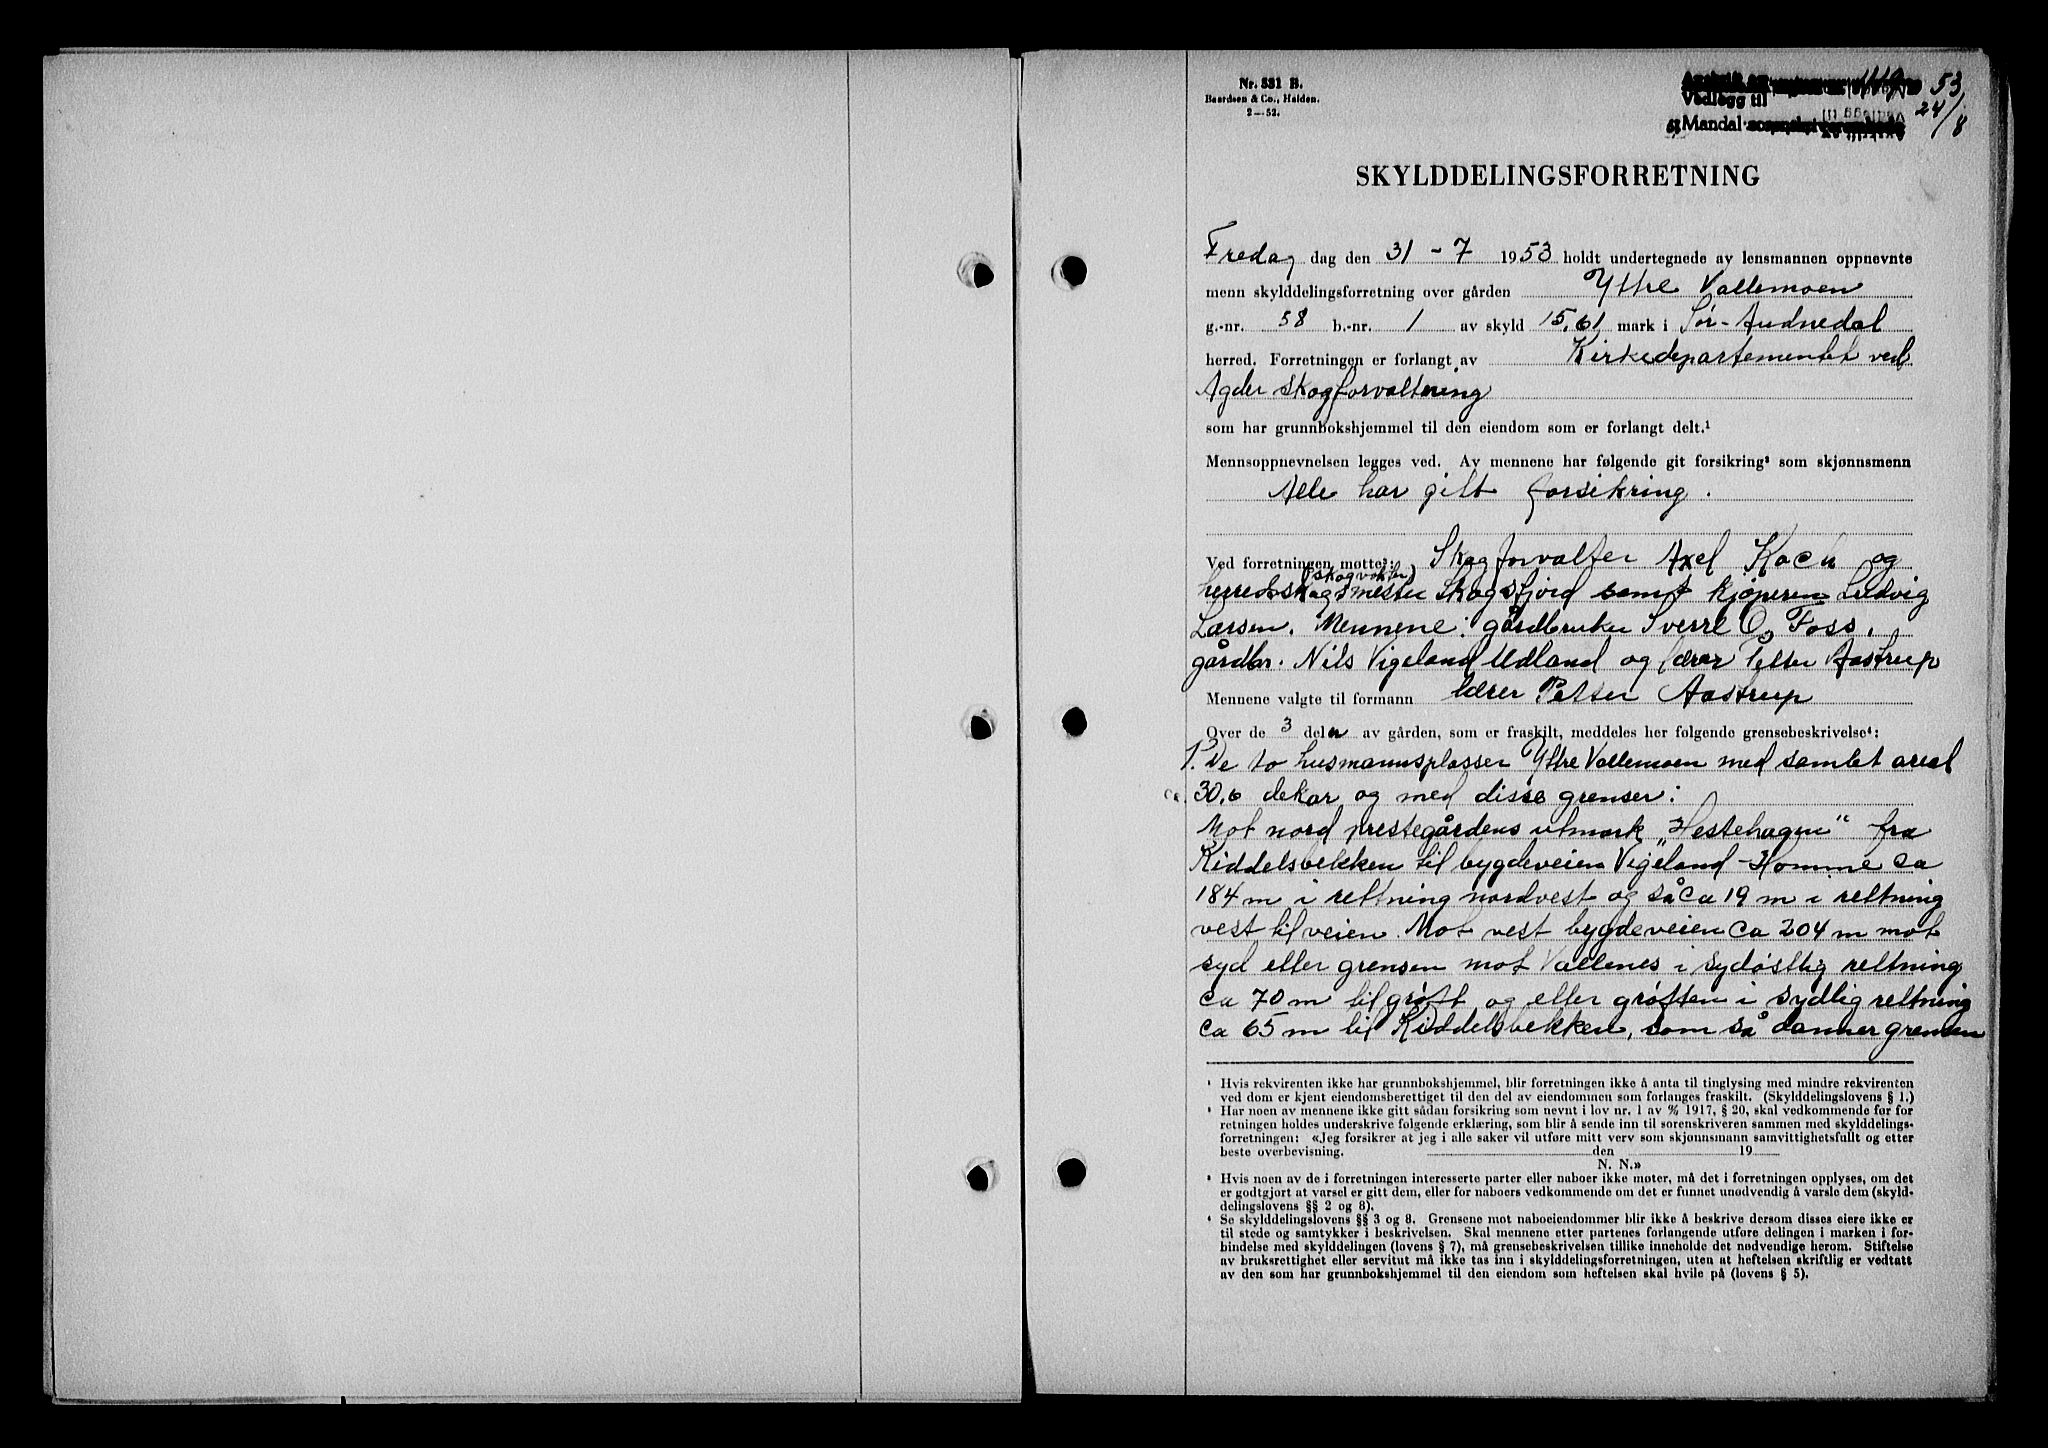 Nr. 531 B.
Baardsen & Co., Halden.
2—52.
Vedlegg til
Mandal sorenskriverembede
1119
53
24/8
SKYLDDELINGSFORRETNING
Fredag dag den 31 - 7 1953 holdt undertegnede av lensmannen oppnevnte
menn skylddelingsforretning over gården Ytre Vallemoen
g.-nr. 58 b.-nr. 1 av skyld 15,61 mark i Sør-Audnedal
herred. Forretningen er forlangt av Kirkedepartementet ved
Agder skogforvaltning
som har grunnbokshjemmel til den eiendom som er forlangt delt.¹
Mennsoppnevnelsen legges ved. Av mennene har følgende git forsikring² som skjønnsmenn
Alle har gitt forsikring.
Ved forretningen møtte³: Skogforvalter Axel Koch og
(skogvokter)
herredsskogmester Skogsfjord samt kjøperen Ludvig
Larsen. Mennene: gårdbruker Sverre O. Foss,
gårdbr. Nils Vigeland Udland og lærer Petter Aastrup
Mennene valgte til formann lærer Petter Aastrup
Over de 3 delen av gården, som er fraskilt, meddeles her følgende grensebeskrivelse⁴:
1. De to husmannsplasser Ytre Vallemoen med samlet areal
ca. 30,6 dekar og med disse grenser:
Mot nord prestegårdens utmark „Hestehagen" fra
Kiddelsbekken til bygdeveien Vigeland-Homme ca
184 m i rettning nordvest og så ca 19 m i rettning
vest til veien. Mot vest bygdeveien ca 204 m mot
syd etter grensen mot Vallenes i sydøstlig rettning
ca 70 m til grøft og etter grøften i sydlig rettning
ca 65 m til Kiddelsbekken, som så danner grensen
¹ Hvis rekvirenten ikke har grunnbokshjemmel, blir forretningen ikke å anta til tinglysing med mindre rekvirenten
ved dom er kjent eiendomsberettiget til den del av eiendommen som forlanges fraskilt. (Skylddelingslovens § 1.)
² Har noen av mennene ikke gitt sådan forsikring som nevnt i lov nr. 1 av 1917, § 20, skal vedkommende før for
retningen holdes underskrive følgende erklæring, som blir å sende inn til sorenskriveren sammen med skylddelings-
forretningen: «Jeg forsikrer at jeg i alle saker vil utføre mitt verv som skjønnsmann samvittighetsfullt og etter
beste overbevisning. den 19
N. N.»
³ Hvis noen av de i forretningen interesserte parter eller naboer ikke møter, må det i forretningen opplyses, om det
er godtgjort at varsel er gitt dem, eller for naboers vedkommende om det er funnet unødvendig å varsle dem (skyld-
delingslovens §§ 2 og 8).
⁴ Se skylddelingslovens §§ 3 og 8. Grensene mot naboeiendommer blir ikke å beskrive dersom disses eiere ikke er
til stede og samtykker i beskrivelsen. Skal mennene etter partenes forlangende utføre delingen i marken i for-
bindelse med skylddelingen (lovens § 7), må grensebeskrivelsen tillike inneholde det nødvendige herom. Stiftelse
av bruksrettighet eller servitut må ikke tas inn i skylddelingsforretningen, uten at heftelsen skriftlig er vedtatt
av den som har grunnbokshjemmel til den eiendom som heftelsen skal hvile på (lovens § 5).